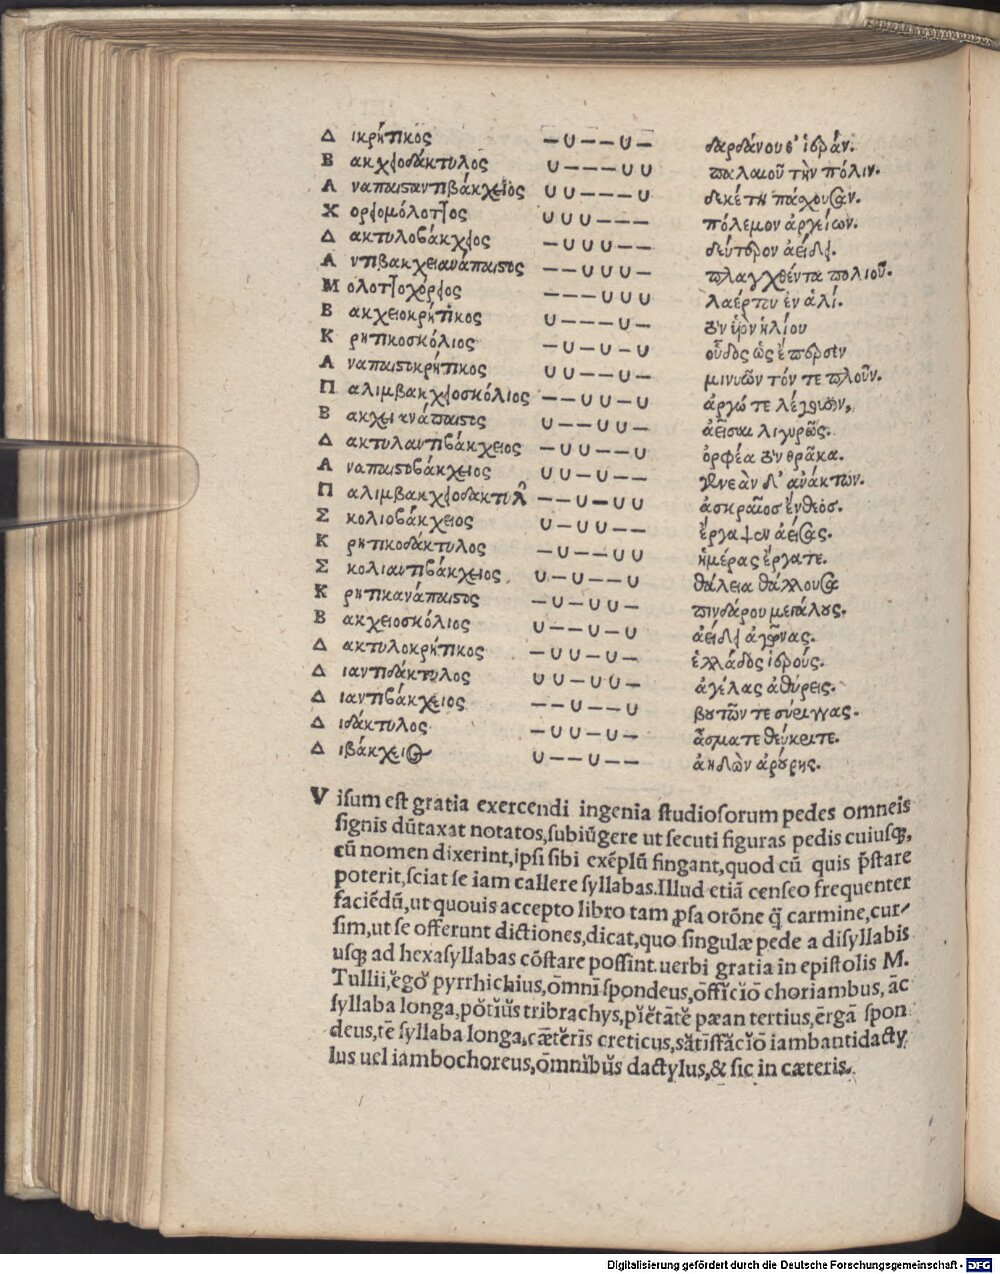 Δ ικρήτικος – ∪ – – ∪ –
Β ακχοδάκτυλος ∪ – – – ∪ ∪ παλαιοῦ τὴν πόλιν.
Α ναπαιστοαντιβάκχειος ∪ ∪ – – – ∪
Χ ορομόλοττος ∪ ∪ ∪ – – – πόλεμον ἀργείων.
Δ ακτυλοβάκχος – ∪ ∪ ∪ – – δεύτερον ἀείδει.
Α ντιβακχειανάπαιστος – – ∪ ∪ ∪ – πλαγχθέντα πολιοῦ.
Μ ολοττοχόρειος – – – ∪ ∪ ∪ λαέρτην ἐν ἁλί.
Β ακχειοκρήτικος ∪ – – – ∪ –
Κ ρητικοσκόλιος – ∪ – ∪ – ∪
Α ναπαιστοκρήτικος ∪ ∪ – – ∪ – μινυῶν τόν τε πλοῦν.
Π αλιμβακχοσκόλιος – – ∪ ∪ – ∪ ἀργώ τε
Β ακχειανάπαιστος ∪ – – ∪ ∪ – ἀεῖσαι λιγυρῶς.
Δ ακτυλαντιβάκχειος – ∪ ∪ – – ∪ ὀρφέα θρᾶκα.
Α ναπαιστοβάκχειος ∪ ∪ – ∪ – – ἀνάκτων.
Π αλιμβακχοδάκτυλ – – ∪ – ∪ ∪ ἀσκραῖοσ ἔνθεος.
Σ κολιοβάκχειος ∪ – ∪ ∪ – – ἀείσας.
Κ ρητικοδάκτυλος – ∪ – – ∪ ∪ ἡμέρας ἔργα τε.
Σ κολιαντιβάκχειος ∪ – ∪ – – ∪ θάλεια θάλλουσα
Κ ρητικανάπαιστος – ∪ – ∪ ∪ – πινδάρου μεγάλους.
Β ακχειοσκόλιος ∪ – – ∪ – ∪ ἀείδει ἀγῶνας.
Δ ακτυλοκρήτικος – ∪ ∪ – ∪ – ἑλλάδος ἱερούς.
Δ ιαντιδάκτυλος ∪ ∪ – ∪ ∪ – ἀγέλας ἀθύρεις.
Δ ιαντιβάκχειος – – ∪ – – ∪ βουτῶν τε σύριγγας.
Δ ιδάκτυλος – ∪ ∪ – ∪ ∪ ᾄσματε θεύκριτε.
Δ ιβάκχειος ∪ – – ∪ – – ἀηδὼν ἀρούρης.
V isum est gratia exercendi ingenia studiosorum pedes omneis
signis dūtaxat notatos,subiūgere ut secuti figuras pedis cuiusꝗ,
cū nomen dixerint,ipsi sibi exēplū fingant,quod cū quis p̄stare
poterit,sciat se iam callere syllabas.Illud etiā censeo frequenter
faciēdū,ut quouis accepto libro tam ꝓsa orōne q̄ carmine,cur-
sim,ut se offerunt dictiones,dicat,quo singulæ pede a disyllabis
usqꝫ ad hexasyllabas cōstare possint.uerbi gratia in epistolis M.
Tullii,ĕgŏ pyrrhichius,ōmnī spondeus,ōffĭcĭō choriambus, āc
syllaba longa,pŏtĭŭs tribrachys,pĭĕtātĕ pæan tertius,ērgā spon
deus,tē syllaba longa,cǣtĕrīs creticus,sătīsfăcĭō iambantidacty
lus uel iambochoreus,ōmnĭbŭs dactylus,& sic in cæteris.
Digitalisierung gefördert durch die Deutsche Forschungsgemeinschaft - DFG